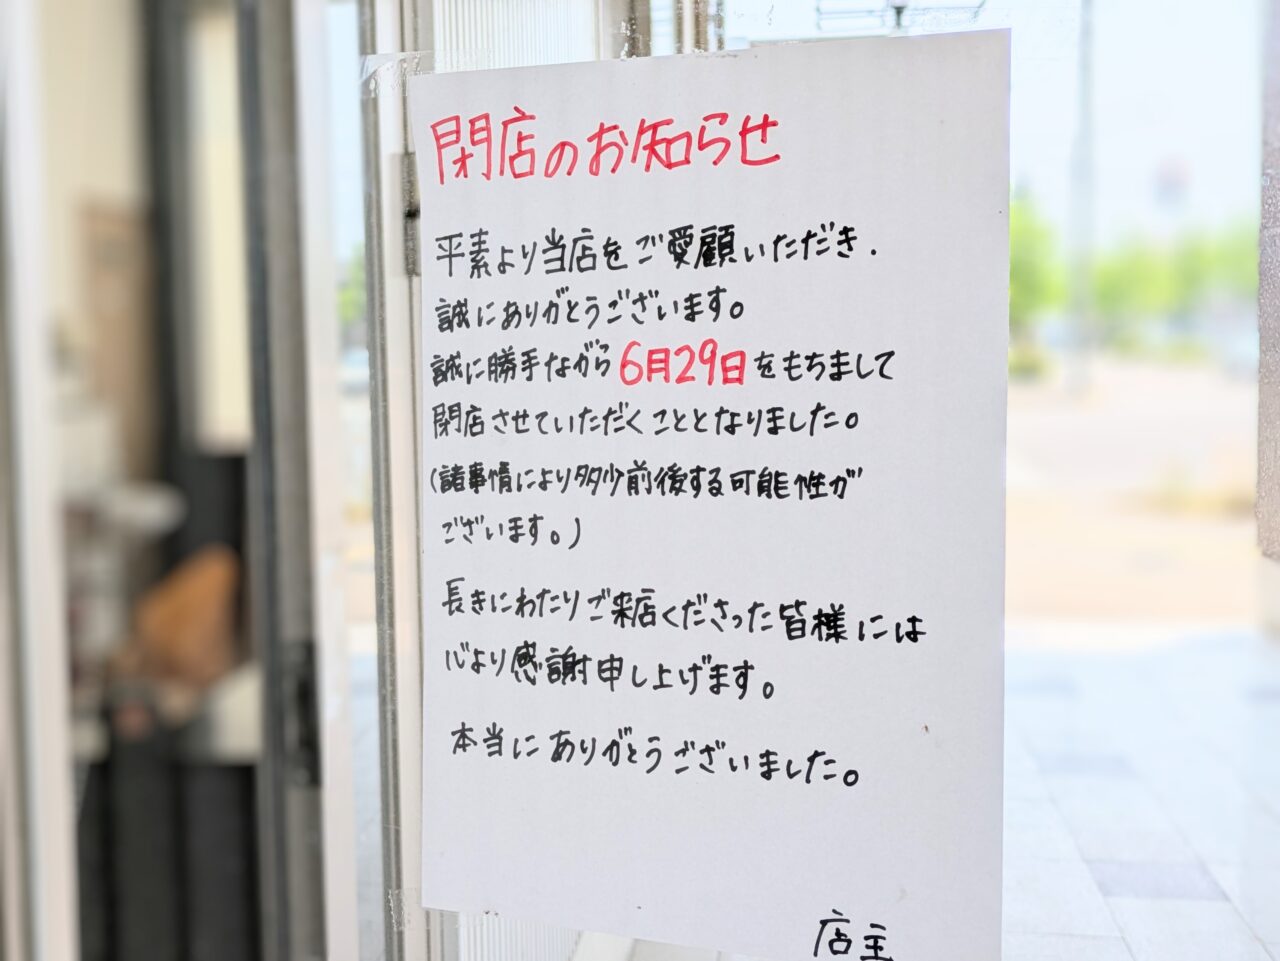 閉店のお知らせ
平素より当店をご愛顧いただき.
誠にありがとうございます。
誠に勝手ながら6月29日をもちまして
閉店させていただくこととなりました。
(諸事情により多少前後する可能性が
ございます。)
長きにわたりご来店くださった皆様には
心より感謝申し上げます。
本当にありがとうございました。
店主